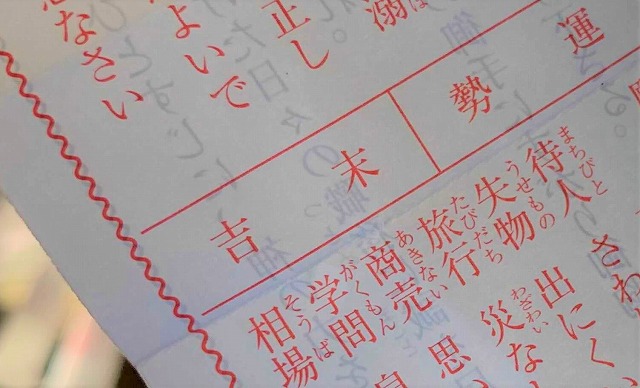 溺
正し
よいで
なさい
運勢
末吉
待人 さわ
まちびと
失物 出にく
うせもの
旅行 災な
たびだち わざわい
商売 思
あきない
学問
がくもん
相場
そうば